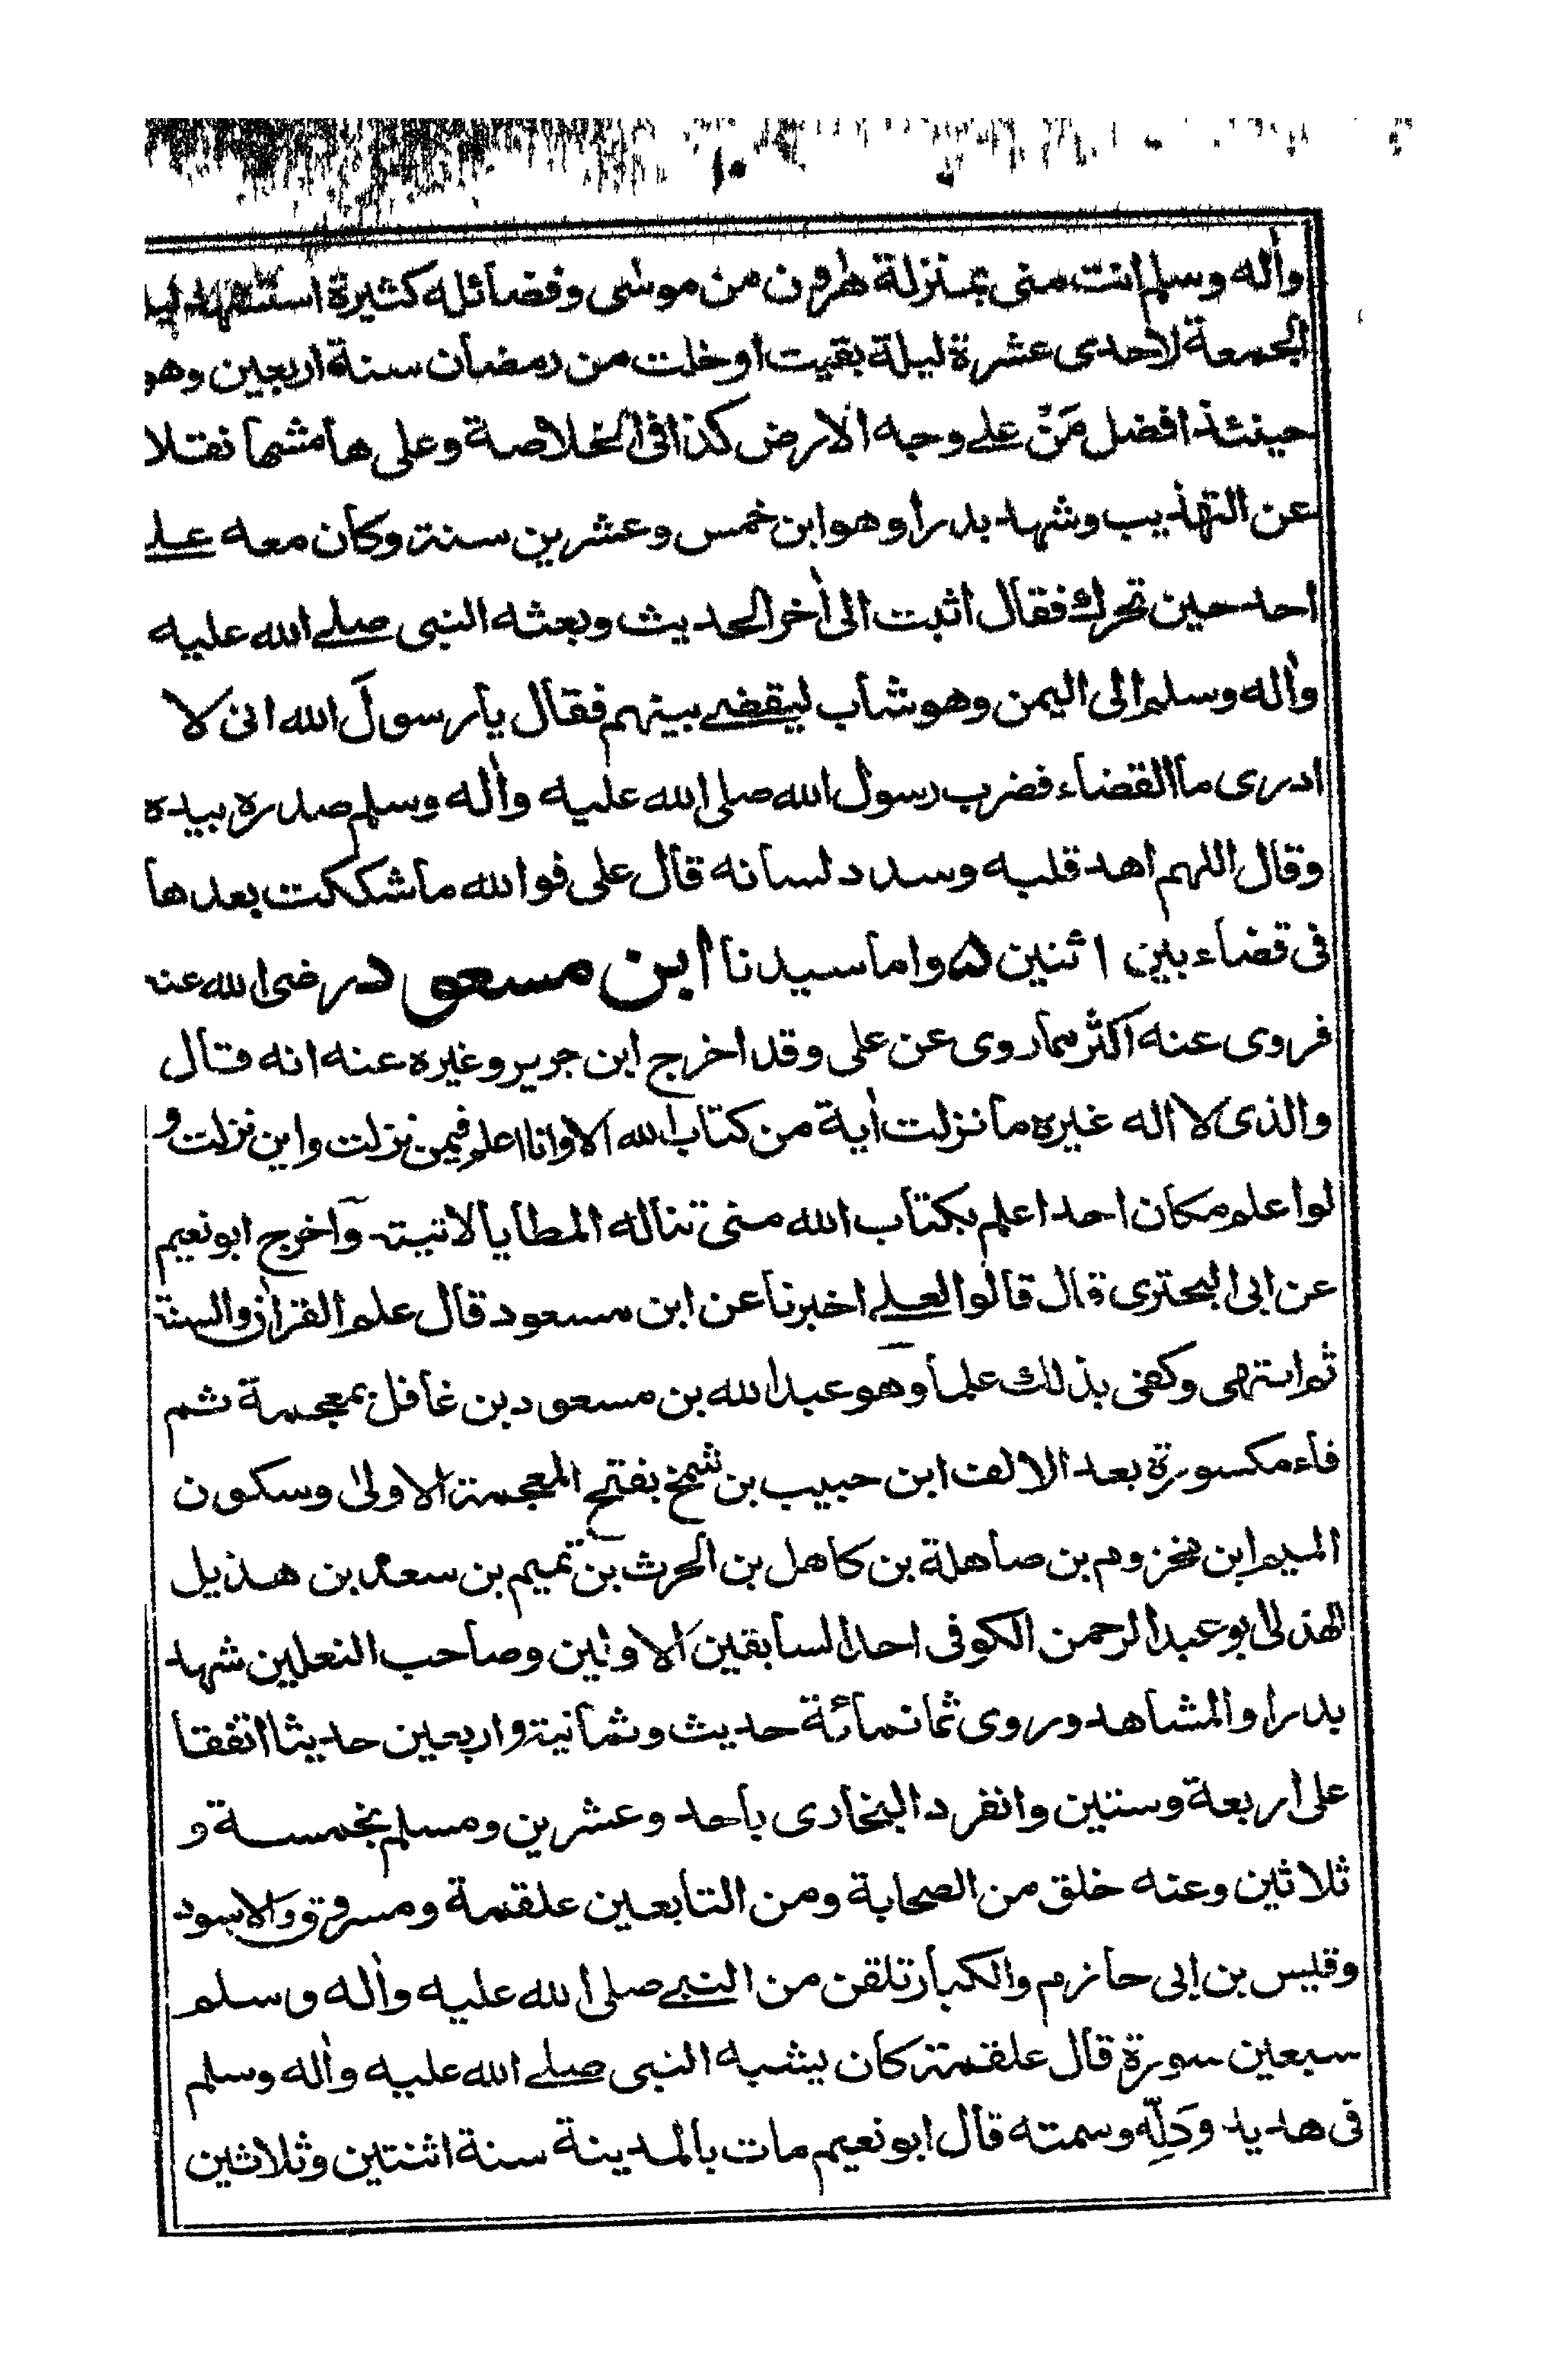 ١٠
واٰله وسلم انت منى بمنزلة هٰرون من موسى وفضائله كثيرة استشهد ليلة
الجمعة لاحدى عشرة ليلة بقيت اوخلت من رمضان سنة اربعين وهو
حينئذ افضل مَنْ على وجه الارض كذا فى الخلاصة وعلى هامشها نقلا
عن التهذيب وشهد بدرا وهو ابن خمس وعشرين سنة وكان معه على
احد حين تحرك فقال اثبت الى اٰخر الحديث وبعثه النبى صلى الله عليه
واٰله وسلم الى اليمن وهو شاب ليقضى بينهم فقال يا رسولَ الله انى لا
ادرى ما القضاء فضرب رسول الله صلى الله عليه واٰله وسلم صدره بيده
وقال اللهم اهد قلبه وسدد لسانه قال على فوالله ما شككت بعدها
فى قضاء بين اثنين ۵ واما سيدنا ابن مسعود رضى الله عنه
فروى عنه اكثر مما روى عن على وقد اخرج ابن جرير وغيره عنه انه قال
والذى لا اله غيره ما نزلت اٰية من كتاب الله الا وانا اعلم فيمن نزلت واين نزلت و
لو اعلم مكان احد اعلم بكتاب الله منى تناله المطايا لاتيته وآخرج ابو نعيم
عن ابى البحترى قال قالوا لعلى اخبرنا عن ابن مسعود قال علم القراٰن والسنة
ثم انتهى وكفى بذلك علما وهو عبد الله بن مسعود بن غافل بمعجمة ثم
فاء مكسورة بعد الالف ابن حبيب بن شمخ بفتح المعجمة الاولى وسكون
الميم ابن مخزوم بن صاهلة بن كاهل بن الحرث بن تميم بن سعد بن هذيل
الهذلى ابو عبد الرحمن الكوفى احد السابقين الاولين وصاحب النعلين شهد
بدرا والمشاهد وروى ثمانمائة حديث وثمانية واربعين حديثا اتفقا
على اربعة وستين وانفرد البخارى باحد وعشرين ومسلم بخمسة و
ثلاثين وعنه خلق من الصحابة ومن التابعين علقمة ومسروق والاسود
وقيس بن ابى حازم والكبار تلقن من النبى صلى الله عليه واٰله وسلم
سبعين سورة قال علقمة كان يشبه النبى صلى الله عليه واٰله وسلم
فى هديه ودَلِّه وسمته قال ابو نعيم مات بالمدينة سنة اثنتين وثلاثين